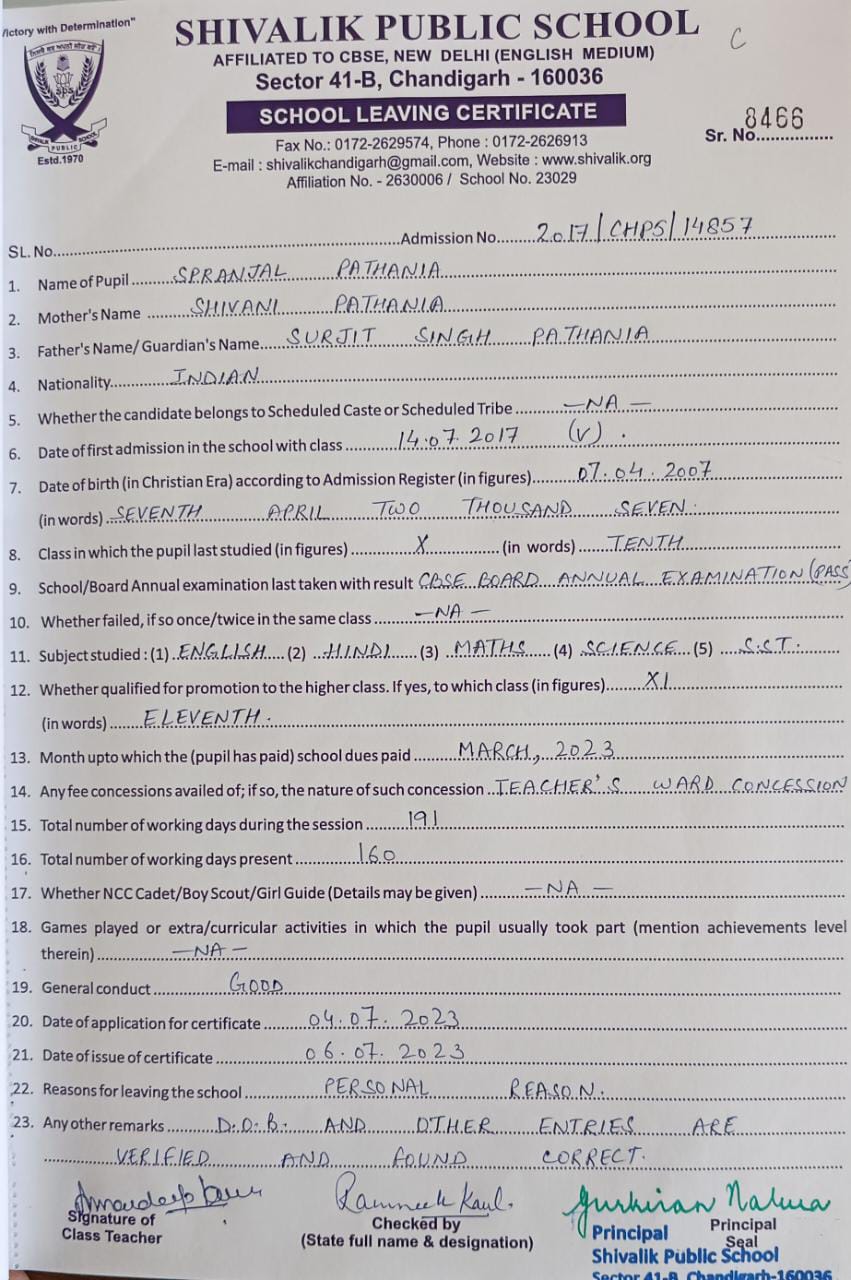 Victory with Determination"
SHIVALIK PUBLIC SCHOOL
C
AFFILIATED TO CBSE, NEW DELHI (ENGLISH MEDIUM)
Sector 41-B, Chandigarh - 160036
SCHOOL LEAVING CERTIFICATE
Sr. No. 8466
SPS
SHIVALIK PUBLIC SCHOOL
Estd.1970
Fax No.: 0172-2629574, Phone : 0172-2626913
E-mail : shivalikchandigarh@gmail.com, Website : www.shivalik.org
Affiliation No. - 2630006 / School No. 23029
SL. No. Admission No. 2017/CHPS/14857
1. Name of Pupil SPRANJAL PATHANIA
2. Mother's Name SHIVANI PATHANIA
3. Father's Name/ Guardian's Name SURJIT SINGH PATHANIA
4. Nationality INDIAN
5. Whether the candidate belongs to Scheduled Caste or Scheduled Tribe —NA—
6. Date of first admission in the school with class 14.07.2017 (V).
7. Date of birth (in Christian Era) according to Admission Register (in figures) 07.04.2007
(in words) SEVENTH APRIL TWO THOUSAND SEVEN.
8. Class in which the pupil last studied (in figures) X (in words) TENTH
9. School/Board Annual examination last taken with result CBSE BOARD ANNUAL EXAMINATION (PASS)
10. Whether failed, if so once/twice in the same class —NA—
11. Subject studied : (1) ENGLISH (2) HINDI (3) MATHS (4) SCIENCE (5) S.ST.
12. Whether qualified for promotion to the higher class. If yes, to which class (in figures) XI
(in words) ELEVENTH.
13. Month upto which the (pupil has paid) school dues paid MARCH, 2023
14. Any fee concessions availed of; if so, the nature of such concession TEACHER'S WARD CONCESSION
15. Total number of working days during the session 191
16. Total number of working days present 160
17. Whether NCC Cadet/Boy Scout/Girl Guide (Details may be given) —NA—
18. Games played or extra/curricular activities in which the pupil usually took part (mention achievements level
therein) —NA—
19. General conduct GOOD
20. Date of application for certificate 04.07.2023
21. Date of issue of certificate 06.07.2023
22. Reasons for leaving the school PERSONAL REASON.
23. Any other remarks D.O.B. AND OTHER ENTRIES ARE
VERIFIED AND FOUND CORRECT.
Amandeep Kaur Ramneek Kaul. Gurkiran Nalwa
Signature of Class Teacher
Checked by
(State full name & designation)
Principal
Seal
Principal
Shivalik Public School
Sector 41-B, Chandigarh-160036